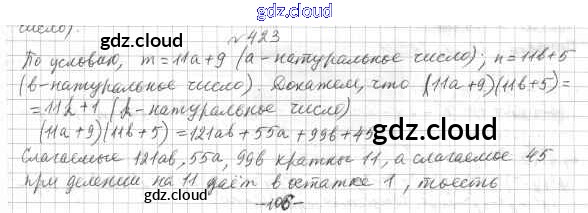 gdz.cloud
число).
gdz.cloud №423 gdz.cloud
По условию, m=11a+9 (a-натуральное число); n=11b+5
(b-натуральное число). Докажем, что (11a+9)(11b+5)=
=11k+1 (k-натуральное число)
(11a+9)(11b+5)=121ab+55a+99b+45
gdz.cloud
Слагаемые 121ab, 55a, 99b кратны 11, а слагаемое 45
при делении на 11 даёт в остатке 1, то есть
-106-
gdz.cloud gdz.cloud